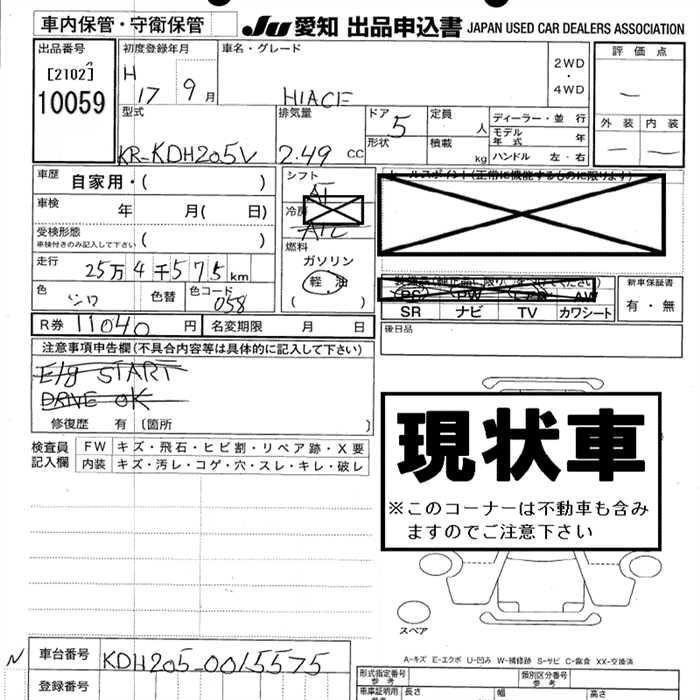 車内保管・守衛保管
JU 愛知 出品申込書 JAPAN USED CAR DEALERS ASSOCIATION
出品番号
[2102]
10059
初度登録年月
H 17 9月
車名・グレード
HIACE
2WD
・
4WD
評価点
—
外装 内装
— —
型式
KR-KDH205V
排気量
2.49 CC
ドア
5
形状
定員
人
積載
kg
ディーラー・並行
モデル年式 年
ハンドル 左・右
車歴 自家用・( )
車検 年 月( 日)
受検形態
車検付きのみ記入して下さい ( )
走行 25万4千575km
色 シロ 色替 色コード 058
シフト
AT
冷房
A/C
燃料
ガソリン
軽油
( )
セールスポイント(正常に機能するものに限ります)
PS PW AW
SR ナビ TV カワシート
新車保証書
有・無
後日品
R券 11040円 名変期限 月 日
注意事項申告欄(不具合内容等は具体的に記入して下さい)
E/g START
DRIVE OK
修復歴 有 [箇所 ]
検査員記入欄
FW キズ・飛石・ヒビ割・リペア跡・X要
内装 キズ・汚レ・コゲ・穴・スレ・キレ・破レ
現状車
※このコーナーは不動車も含み
ますのでご注意下さい
スペア
A-キズ E-エクボ U-凹み W-補修跡 S-サビ C-腐食 XX-交換済
N
車台番号 KDH205-0015575
登録番号
型式指定番号
参考
類別区分番号
参考
車庫証明用
参考
長さ 幅 高さ